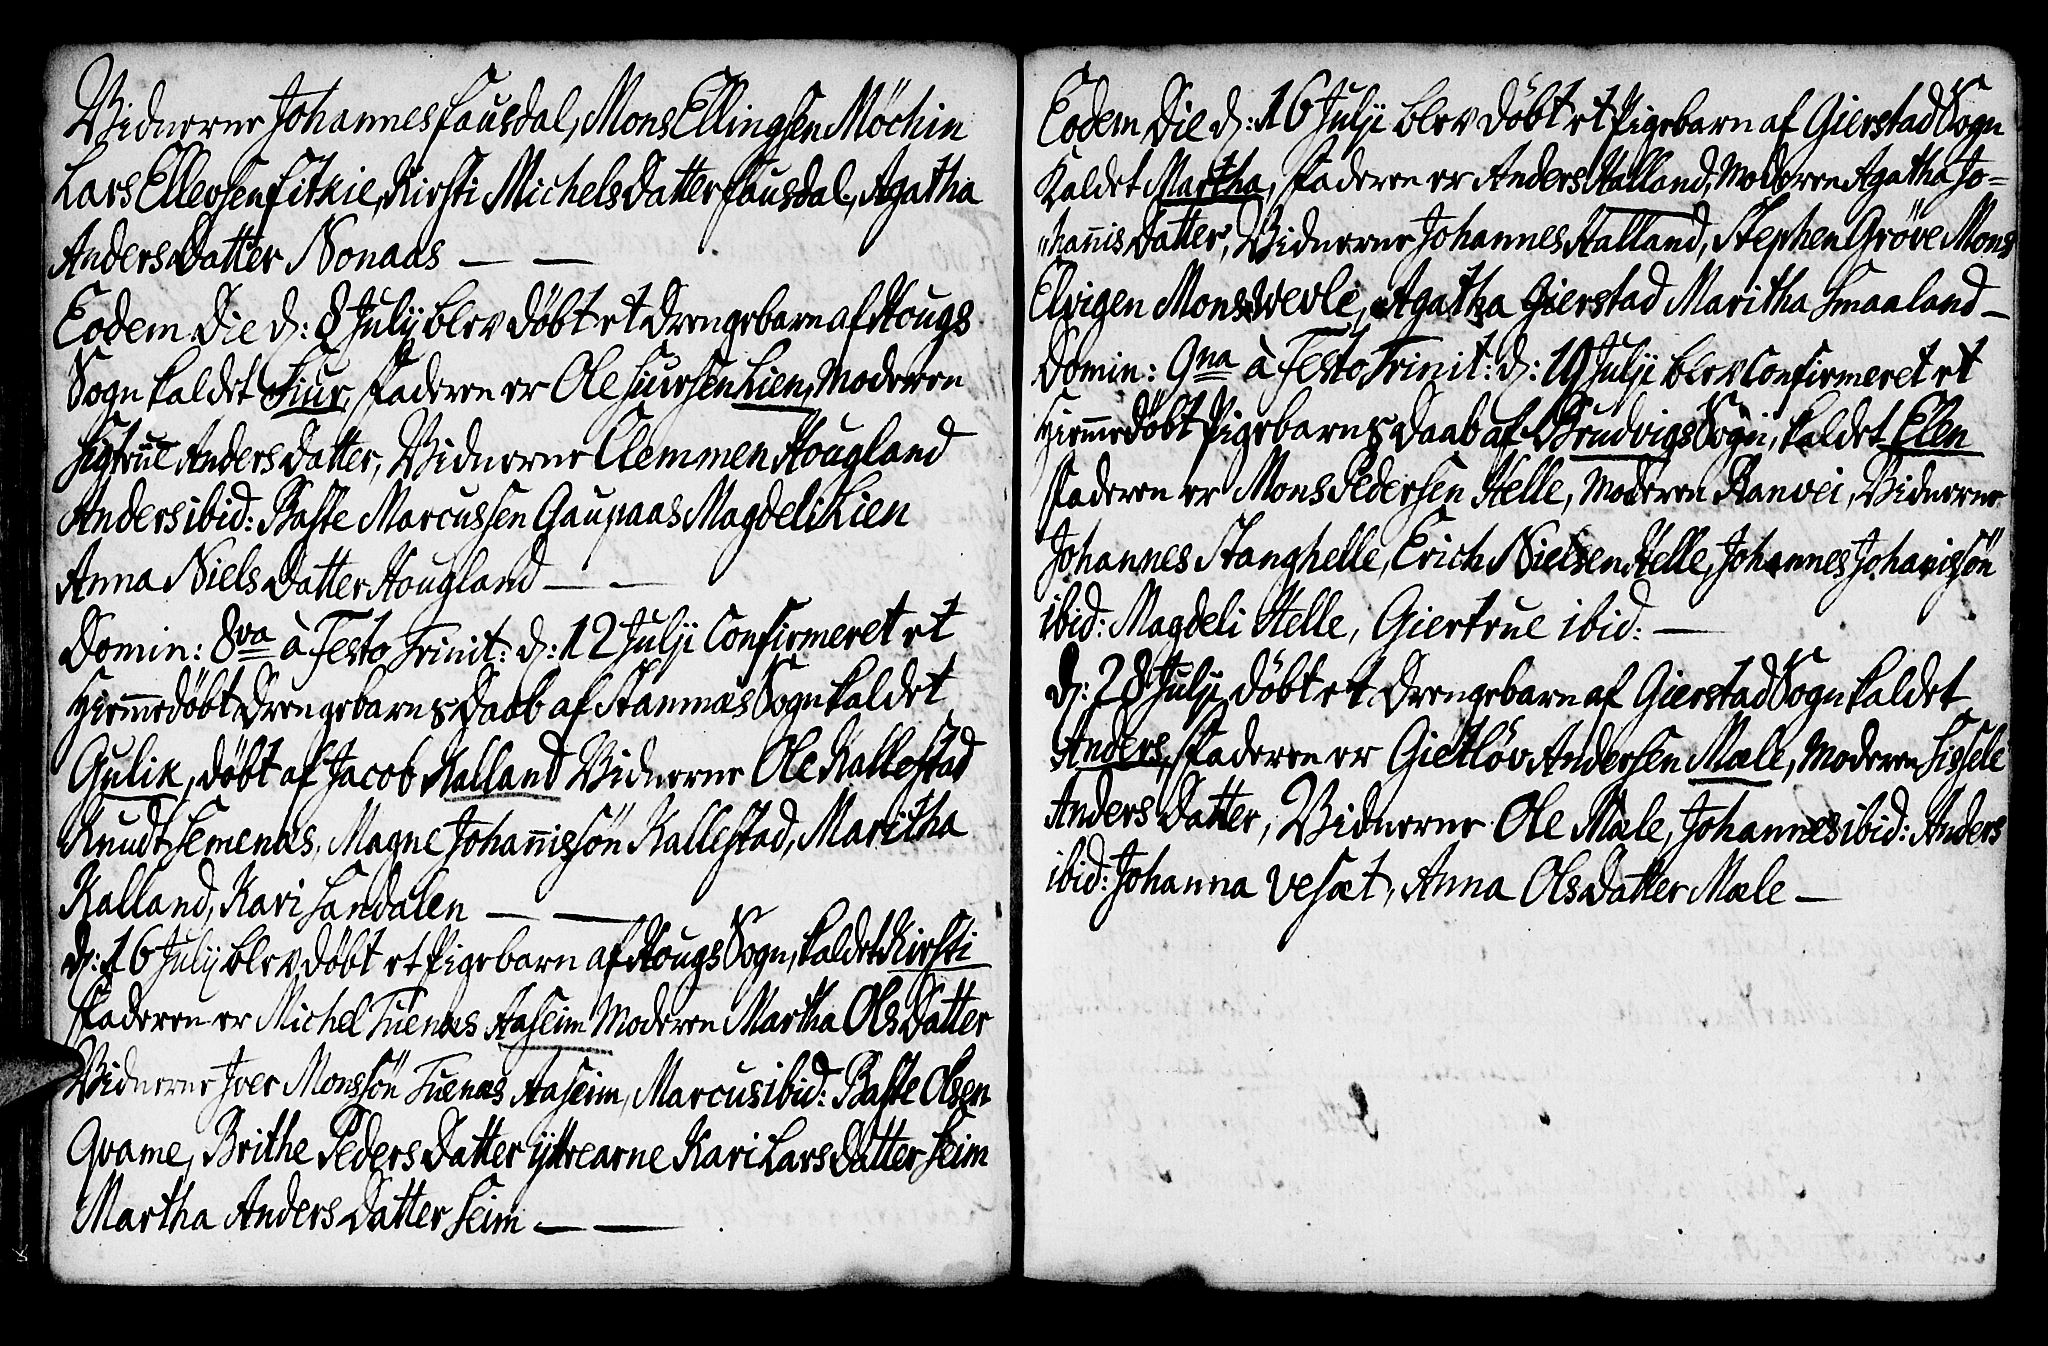 Vidnerne Johannes Fausdal, Mons Ellingsen Möchin
Lars Ellevsen Fitkie, Kirsti Michels Datter Fausdal, Agatha
Anders Datter Nonaas — —
Eodem Die d: 8 Julij blev döbt et Drengebarn af Hougs
Sogn kaldet Siur, Faderen er Ole Siursen Lien, Moderen
Sigtrue Anders Datter, Vidnerne Clemmen Hougland
Anders ibid: Baste Marcussen Gaupaas Magdeli Lien
Anna Niels Datter Hougland — —
Domin: 8va à Festo Trinit: d: 12 Julji Confirmeret et
Hiemmedöbt Drengebarns Daab af Stamnæs Sogn kaldet
Gulik, döbt af Jacob Kalland Vidnerne Ole Kallestad
Knudt Semenæs, Magne Johañissön Kallestad, Maritha
Kalland, Kari Sandalen — —
d: 16 Julij blev döbt et Pigebarn af Hougs Sogn, kaldet Kirsti
Faderen er Michel Tuenæs Aaseim Moderen Martha Ols Datter
Vidnerne Iver Monssön Tuenæs Aaseim, Marcus ibid: Baste Olsen
Qvame, Brithe Peders Datter ÿttrearne Kari Lars Datter Seim
Martha Anders Datter Seim — —
Eodem Die d: 16 Julji blev döbt et Pigebarn af Gierstad Sogn
Kaldet Martha, Faderen er Anders Halland, Moderen Agatha Jo=
"hañis Datter, Vidnerne Johannes Halland, Stephen Gröve Mons
Elvigen Mons Wevle, Agatha Gierstad Maritha Smaaland —
Domin: 9na à Festo Trinit: d: 19 Julji blev Confirmeret et
Hiemmedöbt Pigebarns Daab af Brudvigs Sogn, kaldet Elen
Faderen er Mons Pedersen Helle, Moderen Ranvei, Vidnerne
Johannes Stanghelle, Erich Nielsen Helle, Johannes Johanissön
ibid: Magdeli Helle, Giertrue ibid: —
d: 28 Julji döbt et Drengebarn af Gierstad Sogn kaldet
Anders, Faderen er Gietlöv Andersen Mæle, Moderen Sissele
Anders Datter, Vidnerne Ole Mæle, Johannes ibid: Anders
ibid: Johanna Vesæt, Anna Ols Datter Mæle —